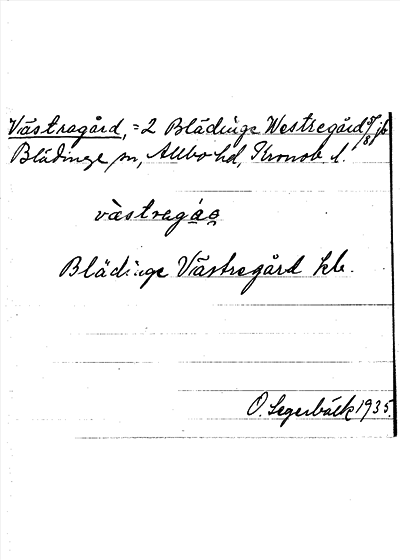 Västragård, = 2 Blädinge Westregård 3/8 jb
Blädinge sn, Allbo hd, Kronob. l.
västragás
Blädinge Västregård kb.
O. Segerbäck 1935.